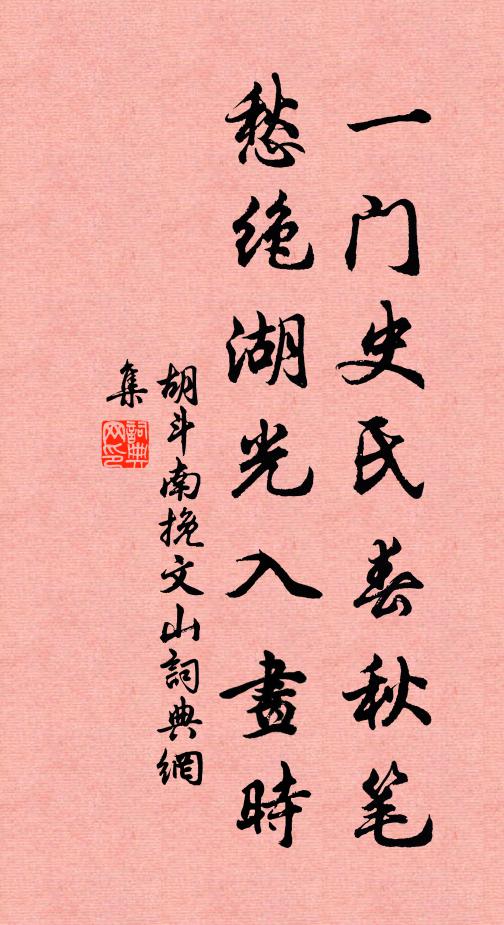 一门史氏春秋笔
愁绝湖光入畫時
胡斗南挽文山詞典網
集
詞典網印